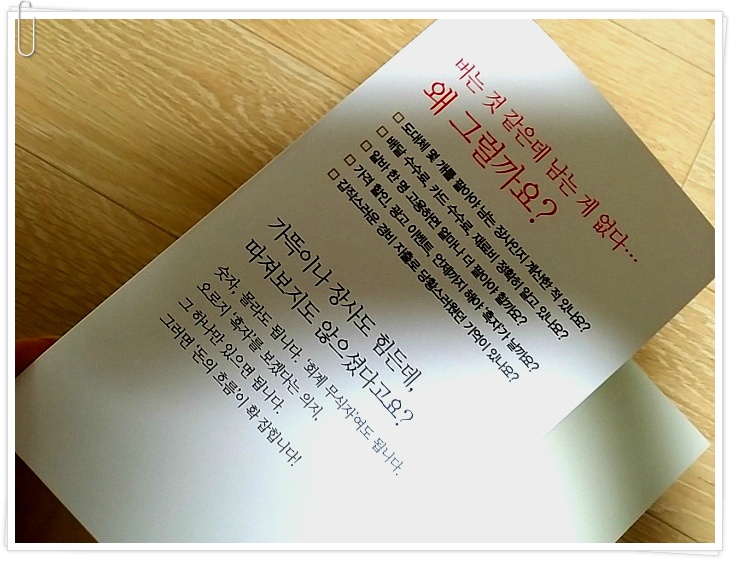 버는 것 같은데 남는 게 없다…
왜 그럴까요?
□ 도대체 몇 개를 팔아야 남는 장사인지 계산한 적 있나요?
□ 배달 수수료, 카드 수수료, 재료비 정확히 알고 있나요?
□ 알바 한 명 고용하면 얼마나 더 팔아야 할까요?
□ 가격 할인, 광고 이벤트, 언제까지 해야 흑자가 날까요?
□ 갑작스러운 경비 지출로 당황스러웠던 기억이 있나요?
가뜩이나 장사도 힘든데,
따져보지도 않으셨다고요?
숫자, 몰라도 됩니다. '회계 무식자'여도 됩니다.
오로지 '흑자'를 보겠다는 의지,
그 하나만 있으면 됩니다.
그러면 '돈의 흐름'이 확 잡힙니다!